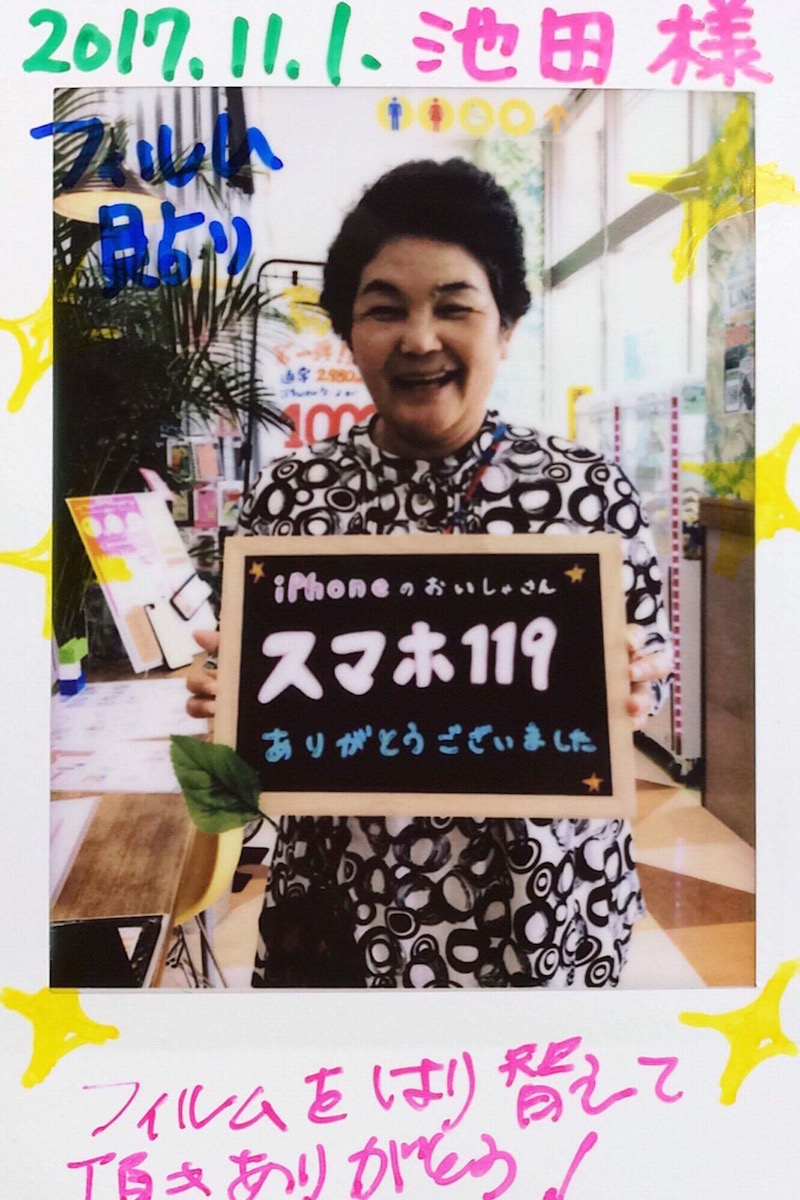 2017.11.1. 池田 様
フィルム
貼り
第一弾!!
通常 2,980
1000
iPhoneのおいしゃさん
スマホ119
ありがとうございました
フィルムをはり替えて
頂きありがとう!